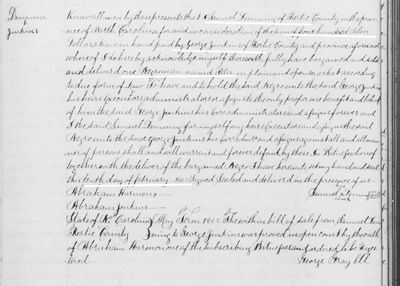 Know all men by these presents that I Samuel Denning of Bertie County in the prov
ince of North Carolina for and in consideration of the sum of four hundred silver
Dollars to me in hand paid by George Jenkins of Bertie County and province aforesaid
where of I do hereby acknowledge myself therewith fully have bargained and sold
and delivered one Negro man named Peter in plain and open market according
to due form of law To have and to hold the said Negro unto the said George Jenkins
his heirs Executors administrators assigns to the only proper use benefit and behoof
of him the said George Jenkins his Exrs administrators and assigns forever and
I the said Samuel Denning for myself my heirs Executors and assigns the said
Negro unto the said George Jenkins his Exrs administrators and assigns against all and all man
ner of persons shall and will warrant and forever defend by these In Witness whereof
together with the delivery of the bargained Negro I have hereunto set my hand and seal
this tenth day of February 1802 Signed Sealed and delivered in the presence of us
Abraham Harmon
Samuel Denning
Abraham Jenkins
State of No. Carolina May Term 1802 The within bill of sale from Samuel Den
Bertie County ning to George Jenkins was proved in open court by the oath
of Abraham Harmon one of the subscribing Witnesses and ordered to be regis
tered
George Gray Clk
Jenkins